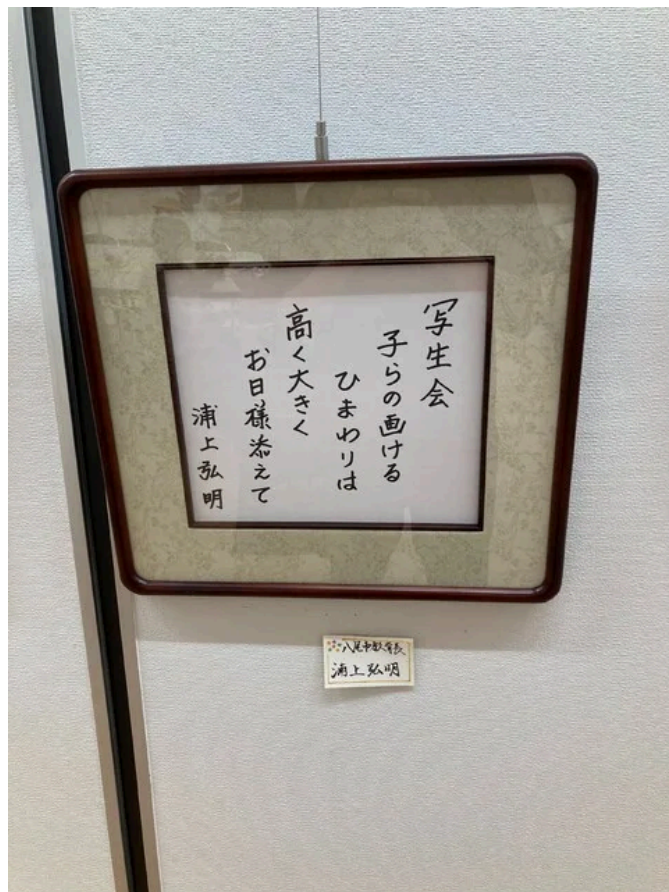 写生会
子らの画ける
ひまわりは
高く大きく
お日様添えて
浦上弘明
八尾市教育長
浦上弘明